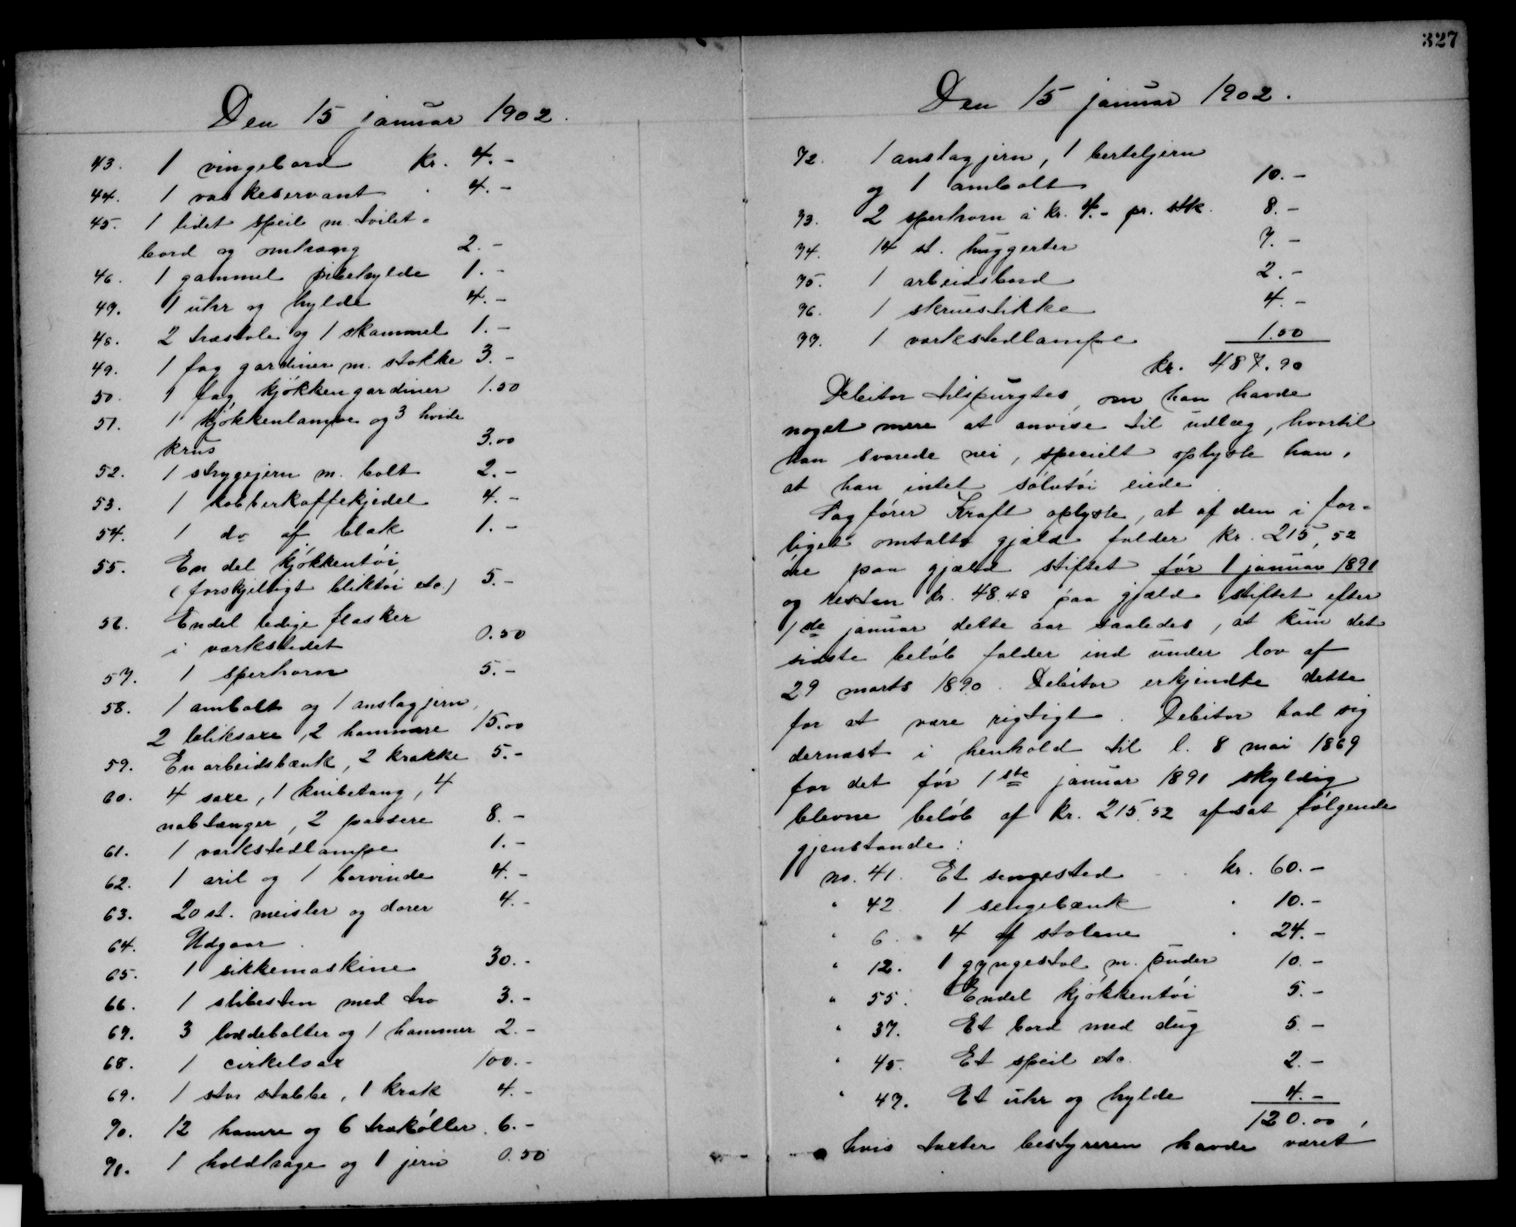 Den 15 januar 1902.
43. 1 vingebord kr. 4.-
44. 1 vaskeservant " 4.-
45. 1 lidet speil m. toilet-
bord og omhæng 2.-
46. 1 gammel pibehylde 1.-
47. 1 uhr og hylde 4.-
48. 2 træstole og 1 skammel 1.-
49. 1 fag gardiner m. stokke 3.-
50. 1 fag kjøkkengardiner 1.50
51. 1 kjøkkenlampe og 3 hvide
krus 3.00
52. 1 strygejern m. bolt 2.-
53. 1 kobberkaffekjedel 4.-
54. 1 do af blik 1.-
55. En del kjøkkentøi
(forskjelligt bliktøi etc.) 5.-
56. Endel ledige flasker
i værkstedet 0.50
57. 1 sperhorn 5.-
58. 1 ambolt og 1 anslagjern,
2 bliksaxe, 2 hammere 15.00
59. En arbeidsbænk, 2 krakke 5.-
60. 4 saxe, 1 knibetang, 4
nabtænger, 2 passere 8.-
61. 1 værkstedlampe 1.-
62. 1 aril og 1 borvinde 4.-
63. 20 st. meisler og dorer 4.-
64. Udgaar.
65. 1 sikkemaskine 30.-
66. 1 slibesten med tro 3.-
67. 3 loddebolter og 1 hammer 2.-
68. 1 cirkelsax 100.-
69. 1 stor stabbe, 1 krak 4.-
70. 12 hamre og 6 trækøller 6.-
71. 1 holdhage og 1 jern 0.50
327
Den 15 januar 1902.
72. 1 anslagjern, 1 berteljern
og 1 ambolt 10.-
73. 2 sperhorn à kr. 4.- pr. stk. 8.-
74. 14 st. huggerter 7.-
75. 1 arbeidsbord 2.-
76. 1 skruestikke 4.-
77. 1 værkstedlampe 1.00
kr. 487.90
Debitor tilspurgtes, om han havde
noget mere at anvise til udlæg, hvortil
han svarede nei, specielt oplyste han,
at han intet sølvtøi eiede.
Sagfører Kraft oplyste, at af den i for-
liget omtalte gjæld falder kr. 215,52
øre paa gjæld stiftet før 1 januar 1891
og resten kr. 48.48 paa gjæld stiftet efter
1de januar dette aar saaledes, at kun det
sidste beløb falder ind under lov af
29 marts 1890. Debitor erkjendte dette
for at være rigtigt. Debitor bad sig
dernæst i henhold til l. 8 mai 1869
for det før 1ste januar 1891 skyldig
blevne beløb af kr. 215.52 afsat følgende
gjenstande:
no. 41. Et sengested kr. 60.-
" 42 1 sengebænk " 10.-
" 6. 4 af stolene " 24.-
" 12. 1 gyngestol m. puder 10.-
" 55. Endel kjøkkentøi 5.-
" 37. Et bord med dug 5.-
" 45. Et speil etc. 2.-
" 47. Et uhr og hylde 4.-
120.00,
hvis taxter bestyreren havde været